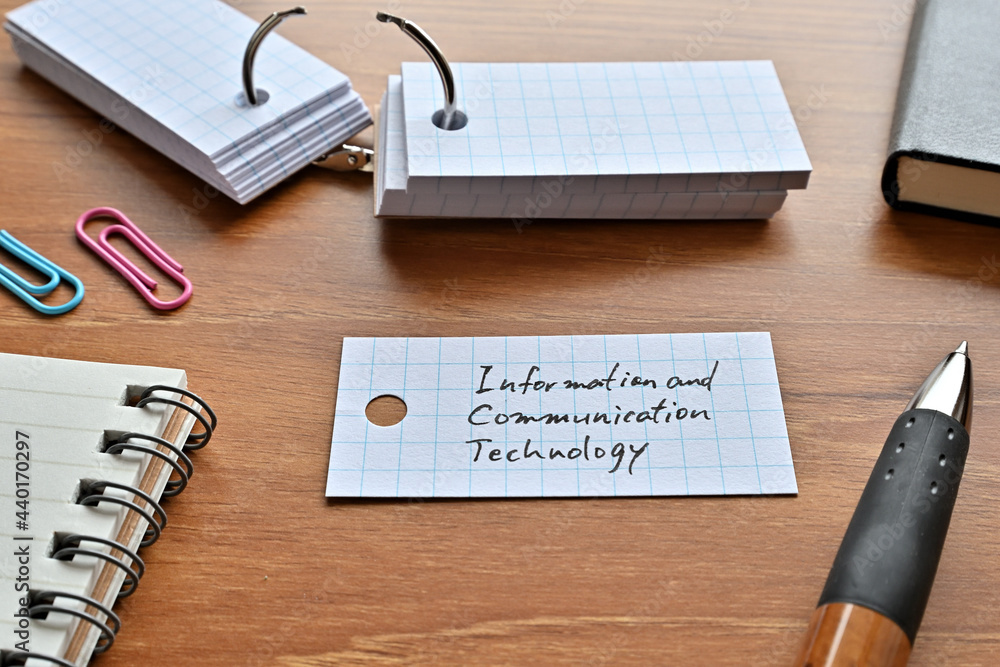 Information and
Communication
Technology
Adobe Stock | #440170297